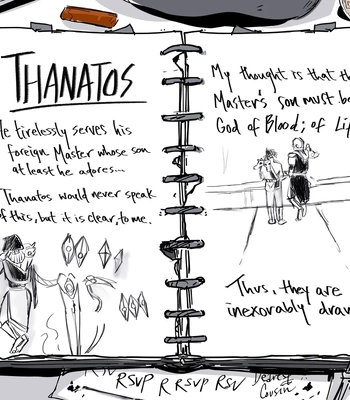 THANATOS
He tirelessly serves his
foreign Master whose son
at least he adores...
Thanatos would never speak
of this, but it is clear, to me.
My thought is that th
Master's son must be
God of Blood; of Li
Thus, they are
inexorably draw
RSVP R RSVP RSV
Dearest
Cousin